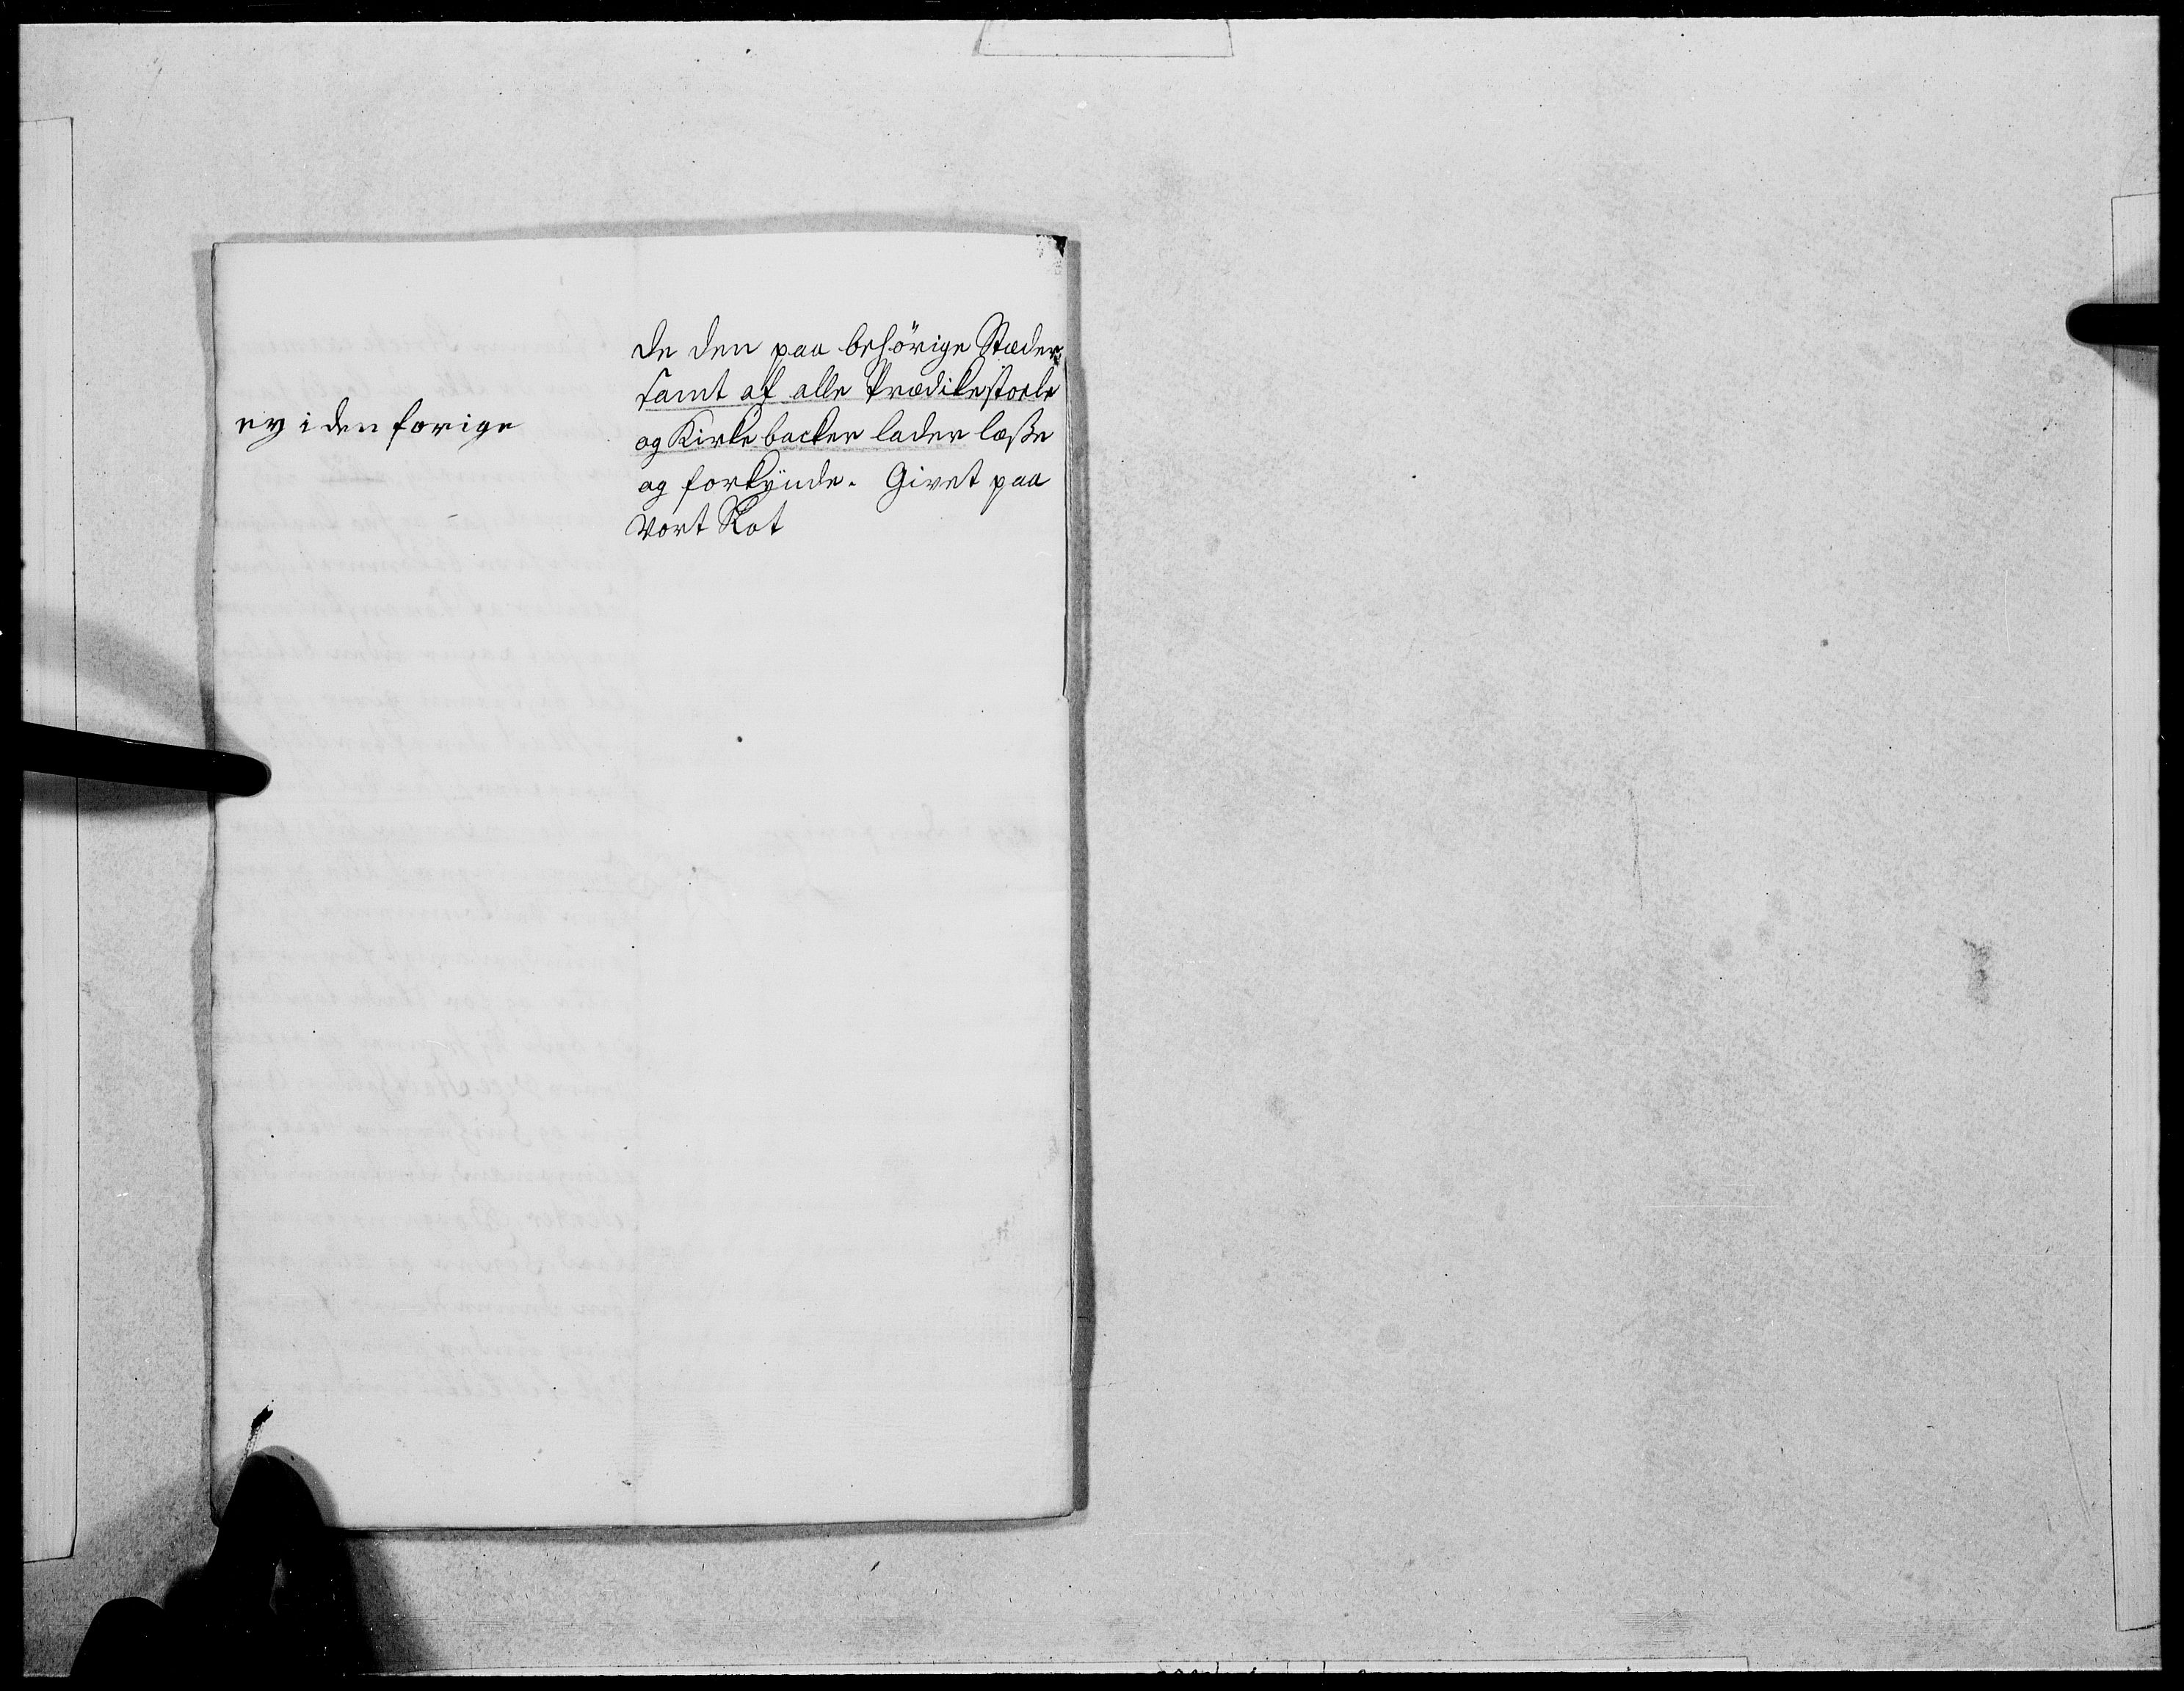 ey i den forige
de den paa behörige Stæder,
samt af alle Prædikestoele
og Kirkebacker lader læsse
og forkynde. Givet paa
Vort Slot